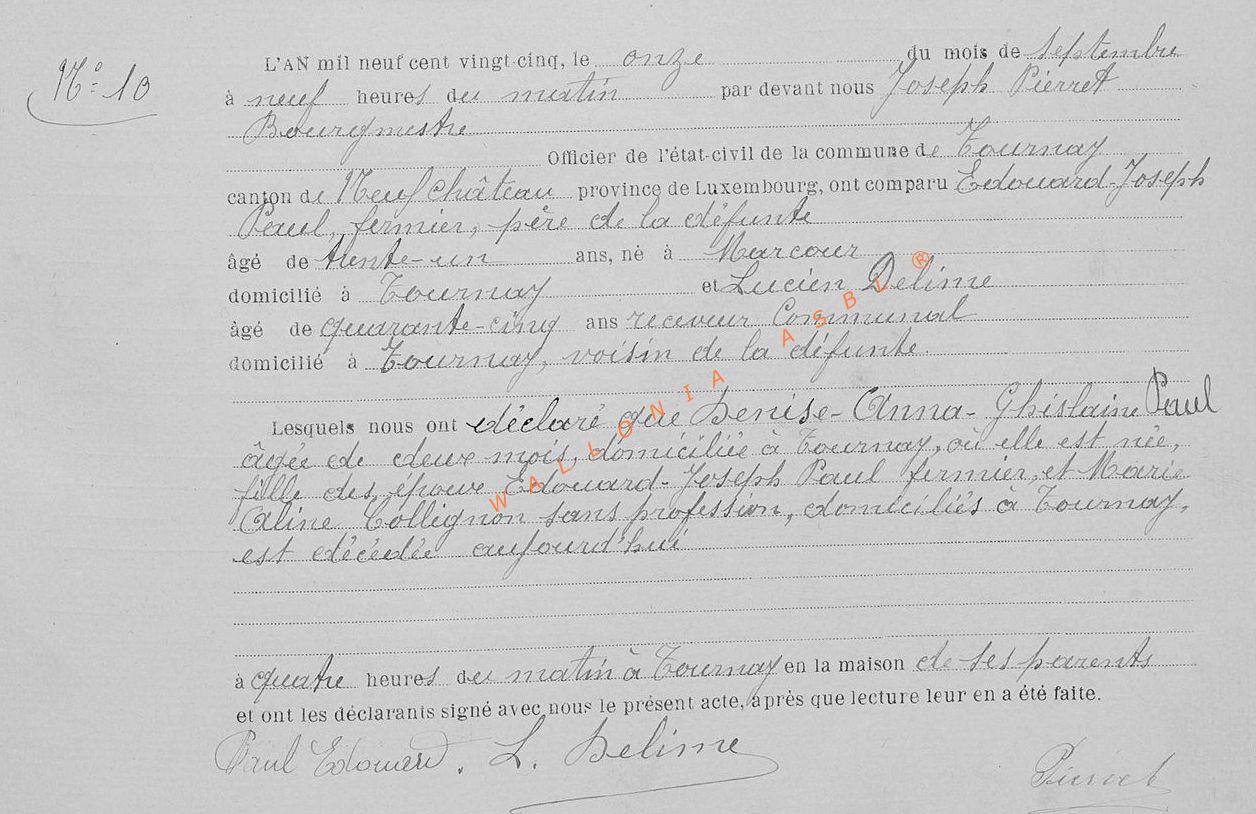 N° 10
L'AN mil neuf cent vingt-cinq, le onze du mois de septembre
à neuf heures du matin par devant nous Joseph Pierret
Bourgmestre
Officier de l'état-civil de la commune de Tournay
canton de Neufchâteau province de Luxembourg, ont comparu Edouard-Joseph
Paul, fermier, père de la défunte
âgé de trente-un ans, né à Marcour
domicilié à Tournay et Lucien Delime
âgé de quarante-cinq ans receveur Communal
domicilié à Tournay, voisin de la défunte.
Lesquels nous ont déclaré que Denise-Anna-Ghislaine Paul
âgée de deux mois, domiciliée à Tournay, où elle est née,
fille des époux Edouard-Joseph Paul fermier, et Marie
Aline Collignon sans profession, domiciliés à Tournay,
est décédée aujourd'hui
à quatre heures du matin à Tournay en la maison de ses parents
et ont les déclarants signé avec nous le présent acte, après que lecture leur en a été faite.
Paul Edouard. L. Delime
Pierret
WALLONIA ASBL ®